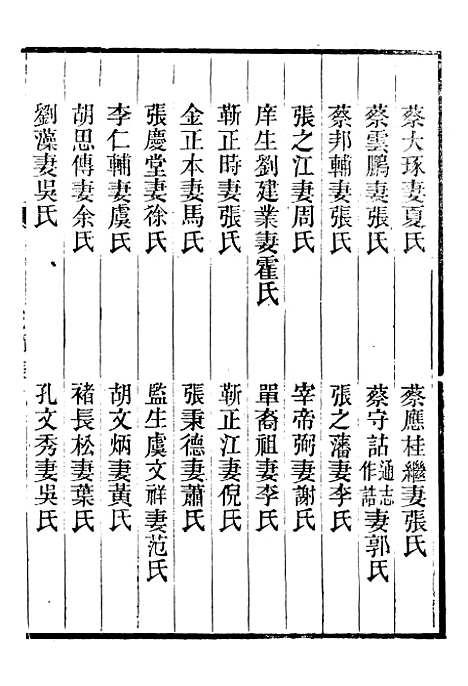 蔡大琢妻夏氏
蔡應桂繼妻張氏
蔡雲鵬妻張氏
蔡守詁通志作誥妻郭氏
蔡邦輔妻張氏
張之藩妻李氏
張之江妻周氏
宰帝弼妻謝氏
庠生劉建業妻霍氏
單裔祖妻李氏
靳正時妻張氏
靳正江妻倪氏
金正本妻馬氏
張秉德妻蕭氏
張慶堂妻徐氏
監生虞文祥妻范氏
李仁輔妻虞氏
胡文炳妻黃氏
胡思傳妻余氏
褚長松妻葉氏
劉藻妻吳氏
孔文秀妻吳氏